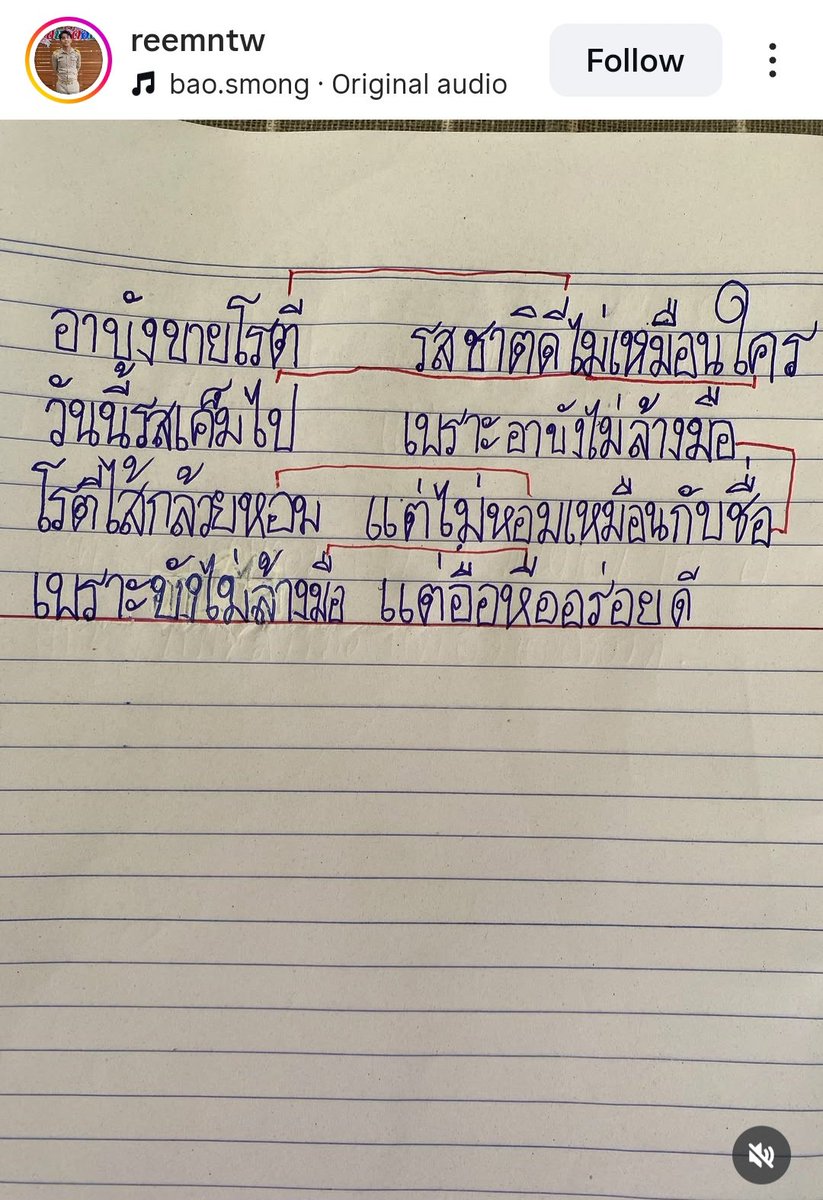 reemntw
bao.smong · Original audio
Follow
อาบังขายโรตี รสชาติดีไม่เหมือนใคร
วันนี้รสเค็มไป เพราะอาบังไม่ล้างมือ
โรตีไส้กล้วยหอม แต่ไม่หอมเหมือนกับชื่อ
เพราะบังไม่ล้างมือ แต่อือหืออร่อยดี